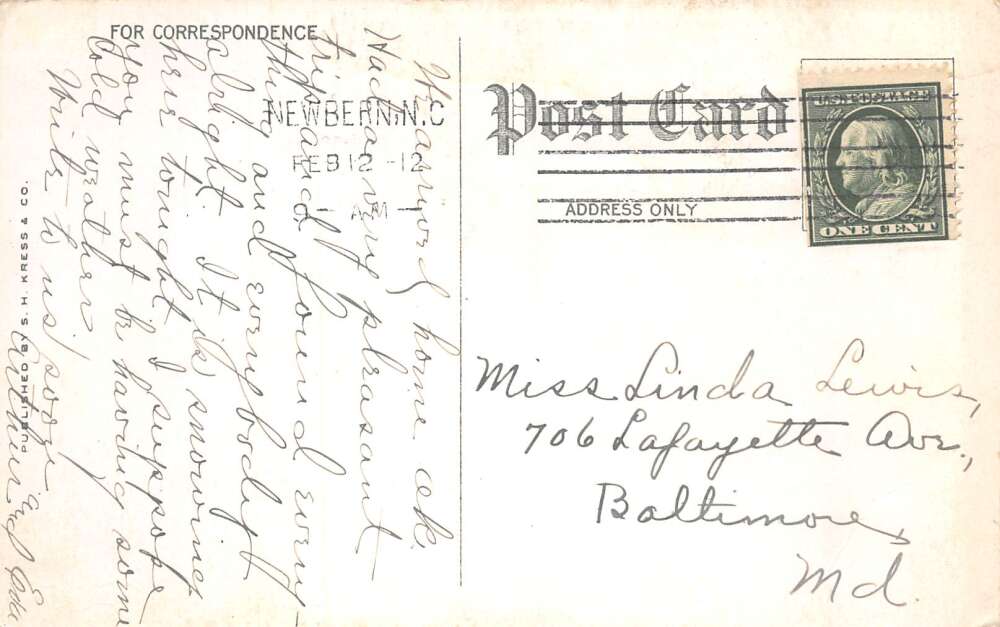 FOR CORRESPONDENCE
We arrived home ok.
Had a very pleasant
trip and found every-
thing and everybody
alright. It is snowing
here tonight. I suppose
you must be having some
cold weather.
Write to us soon.
Arthur and Eda
PUBLISHED BY S. H. KRESS & CO.
NEWBERN, N.C
FEB 12 -12
- AM -
Post Card
ADDRESS ONLY
U.S. POSTAGE
ONE CENT
Miss Linda Lewis,
706 Lafayette Ave.,
Baltimore,
Md.